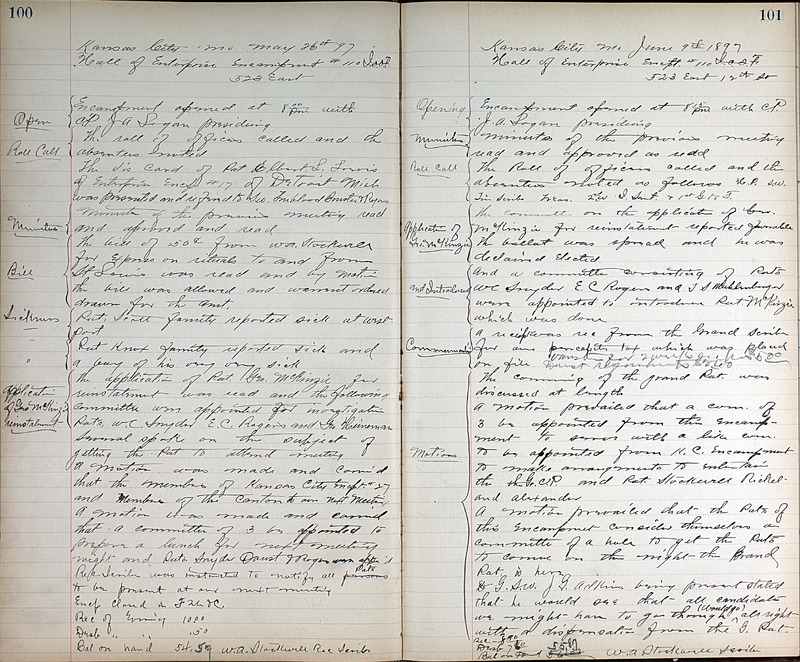 100
Kansas City Mo May 26th 97
Hall of Enterprise Encampment #110 I.O.O.F.
523 East
Open
Encampment opened at 8 pm with
CP J A Logan presiding
Roll Call
The roll of officers called and the
absentees noted
The Vis Card of Pat Elbert L. Lewis
of Enterprise Encpt #17 of Detroit Mich
was presented and referred to Geo.
Minutes
Minutes of the previous meeting read
and approved and read
Bill
The bill of 50¢ from W.A. Stockwell
for Express on rituals to and from
St Louis was read and by motion
the bill was allowed and warrant ordered
drawn for the amt.
Sickness
Pat. Scott family reported sick at West-
port
"
Pat Knox family reported sick and
a of his very very sick
Application
of Geo McKinzie
reinstatement
The application of Pat. Geo. McKinzie for
reinstatement was read and the following
committee was appointed for investigation
Pats. W.C. Snyder E.C. Rogers and Heineman
Several spoke on the subject of
getting the Pat to attend meeting
A motion was made and carried
that the members of Kansas City Encpt #27
and members of the Canton to our next Meeting
A motion was made and carried
that a committee of 3 be appointed to
prepare a lunch for next meeting
night and Pats Snyder Daust & Rogers were app't'd
Rec Scribe was instructed to notify all persons Pats
to be present at our next meeting
Encp closed in F.H.&C.
Rec of Evening 1000
Desb " " .50
Bal on hand 54.50 W.A. Stockwell Rec Scribe
101
Kansas City Mo June 9th 1897
Hall of Enterprise Encpt #110 I.O.O.F.
523 East 12th St
Opening
Encampment opened at 8 pm with C.P.
J.A. Logan presiding
Minutes
Minutes of the previous meeting
read and approved as read
Roll Call
The Roll of officers called and the
absentees noted as follows H.P. S.W.
Fin Scribe Treas.
Application of
Geo McKinzie
The committee on the application of Geo.
McKinzie for reinstatement reported favorable
The ballot was spread and he was
declared elected
and Introduced
And a committee consisting of Pats
W.C. Snyder E C Rogers and
were appointed to introduce Pat McKinzie
which was done
Communication
a receipt was rec from the Grand Scribe
for our percapita tax which was placed
on file
The coming of the grand Pat. was
discussed at length
Motions
A motion prevailed that a com. of
3 be appointed from this Encamp-
ment to serve with a like com.
to be appointed from K.C. Encampment
to make arrangements to entertain
the and Pats Stockwell Rickel-
and Alexander
A motion prevailed that the Pats of
this Encampment consider themselves a
committee of a hole to get the Pats
to come on the night the Grand
Pat. is here
D G. S.W. J G Adkin being present stated
that he would see that all candidates
we might have to go though (would go) all right
with a dispensation from the G. Pat.
W.A. Stockwell Scribe